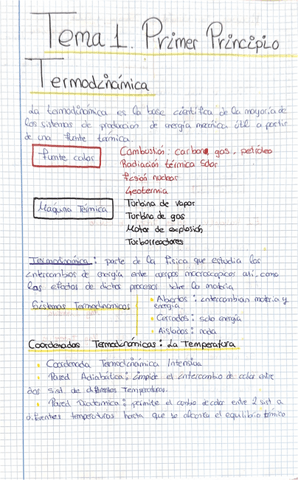 Tema 1. Primer Principio
Termodinámica
La termodinámica es la base científica de la mayoría de
los sistemas de producción de energía mecánica útil a partir
de una fuente térmica.
fuente calor
Combustión: carbón, gas, petróleo
Radiación térmica solar
Fisión nuclear
Geotermia
Maquina Térmica
Turbina de vapor
Turbina de gas
Motor de explosión
Turborreactores
Termodinámica: parte de la física que estudia los
intercambios de energía entre cuerpos macroscópicos así como
los efectos de dichos procesos sobre la materia.
Sistemas Termodinámicos
• Abiertos: intercambian materia y
energía
• Cerrados: solo energía
• Aislados: nada
Coordenadas Termodinámicas: La Temperatura
• Coordenada Termodinámica Intensiva
• Pared Adiabática: Impide el intercambio de calor entre
dos sist. de diferentes Temperaturas.
• Pared Diatérmica: permite el cambio de calor entre 2 sist a
diferentes temperaturas hasta que se alcanza el equilibrio térmico